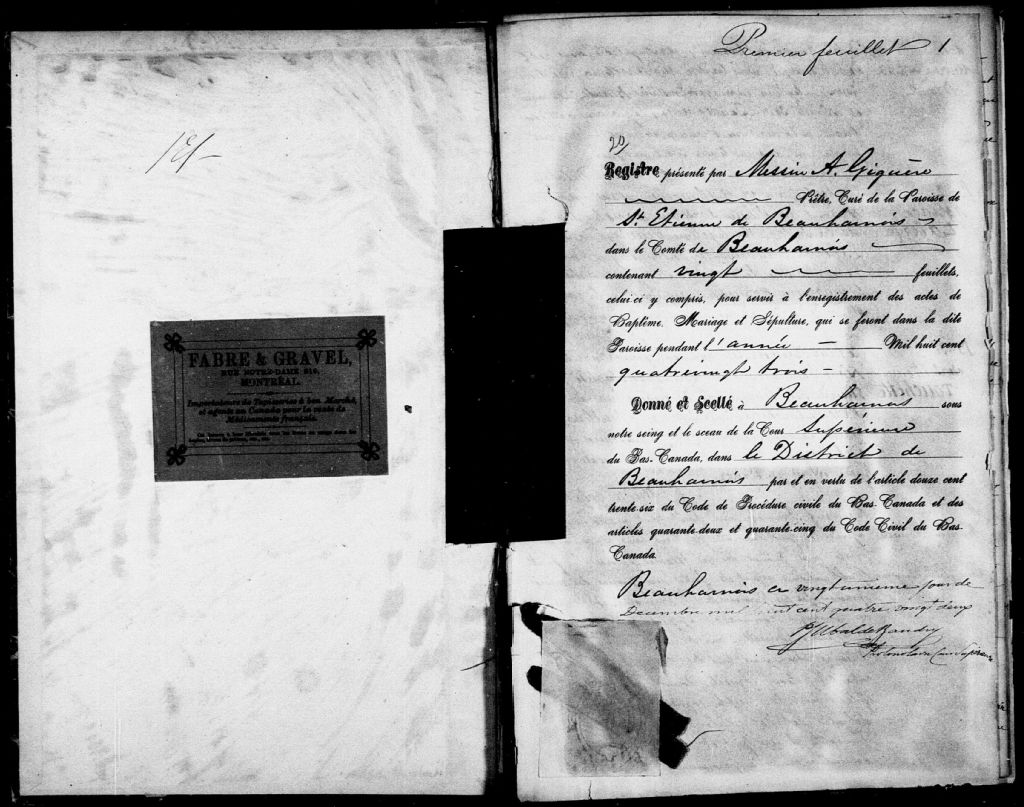 FABRE & GRAVEL,
RUE NOTRE-DAME 219,
MONTRÉAL.
Importateurs de Tapisseries à bon Marché,
et agents en Canada pour la vente de
Médicaments français.
Premier feuillet 1
20
Registre présenté par Messire A. Giguère
Prêtre, Curé de la Paroisse de
St. Etienne de Beauharnois
dans le Comté de Beauharnois
contenant vingt feuillets,
celui-ci y compris, pour servir à l'enregistrement des actes de
Baptême, Mariage et Sépulture, qui se feront dans la dite
Paroisse pendant l'année — Mil huit cent
quatrevingt trois —
Donné et Scellé à Beauharnois sous
notre seing et le sceau de la Cour Supérieure
du Bas-Canada, dans le District de
Beauharnois par et en vertu de l'article douze cent
trente-six du Code de Procédure civile du Bas-Canada et des
articles quarante-deux et quarante-cinq du Code Civil du Bas-
Canada.
Beauharnois ce vingtunieme jour de
Decembre mil huit cent quatre vingt deux